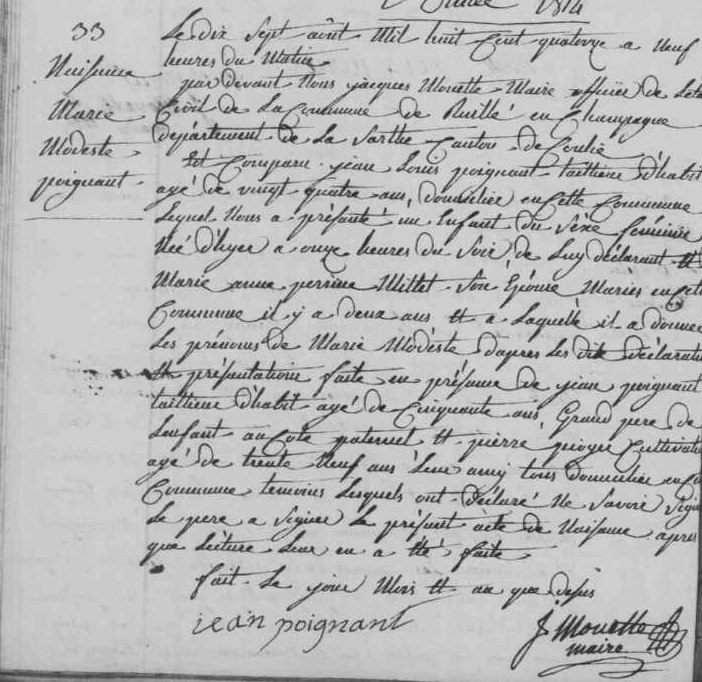 Année 1814
33
Naissance
Marie
Modeste
poignant
Le dix Sept août Mil huit Cent quatorze a Neuf
heures du Matin
par devant Nous jacques Mouette Maire officier de Leta
Civil de La Commune de Ruillé en Champagne
departement de La Sarthe Canton de Conlie
Est Comparu jean Louis poignant tailliene d'habit
agé de vingt quatre ans, domicilié en Cette Commune
Lequel Nous a présenté un Enfant du Sexe féminin
Née d'hyer a onze heures du Soir de Luy déclarant et
Marie anne perrine Millet Son Epouse Maries en Cette
Commune il y a deux ans et a Laquelle il a donner
Les prénoms de Marie Modeste d'apres Les dite déclarati
et présentationt faite en présance de jean poignant
tailliene d'habit agé de Cinquante ans, Grand pere de
Lenfant au Coté paternel et pierre Cultivate
agé de trente Neuf ans Leur amy tous domicilié en Ce
Commune temoins Lesquels ont Déclaré Ne Savoir Signe
Le pere a Signer Le présent acte de Naisance apres
que Lecture Leur en a été faite
fait Le jour Mois et an que desus
jean poignant
J. Mouette
maire